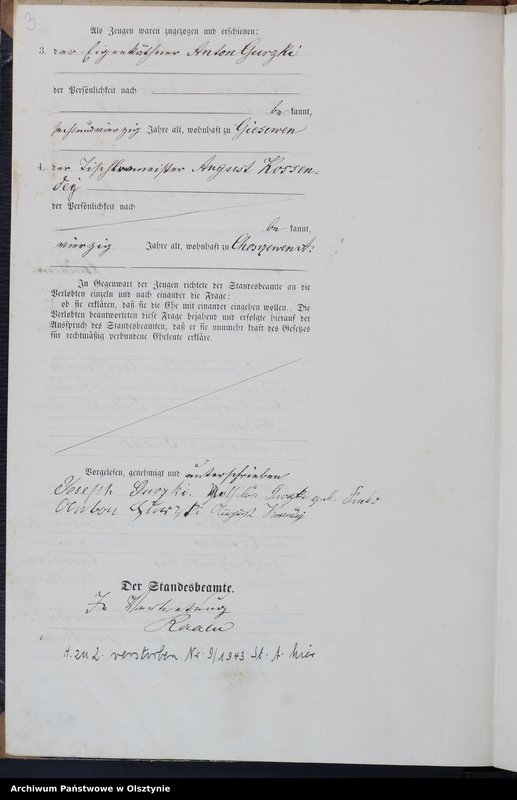 3
Als Zeugen waren zugezogen und erschienen:
3. der Eigenkäthner Anton Gurzki
der Persönlichkeit nach
be kannt,
sechsundvierzig Jahre alt, wohnhaft zu Giesewen
4. der Tischlermeister August Kossen-
dey
der Persönlichkeit nach
be kannt,
vierzig Jahre alt, wohnhaft zu Choszewen A:
In Gegenwart der Zeugen richtete der Standesbeamte an die
Verlobten einzeln und nach einander die Frage:
ob sie erklären, daß sie die Ehe mit einander eingehen wollen. Die
Verlobten beantworteten diese Frage bejahend und erfolgte hierauf der
Ausspruch des Standesbeamten, daß er sie nunmehr kraft des Gesetzes
für rechtmäßig verbundene Eheleute erkläre.
Vorgelesen, genehmigt und unterschrieben
Joseph Gurzki. Gurzki geb.
Anton Gurzki August
Der Standesbeamte.
In Vertretung
z. 2. verstorben Nr. 9/1943 St. A. hier
Archiwum Państwowe w Olsztynie